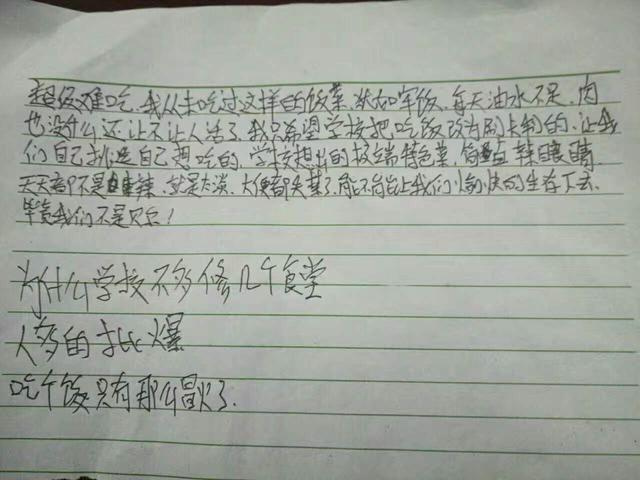 超级难吃,我从未吃过这样的饭菜,状如牢饭,每天油水不足,肉
也没什么还让不让人活了,我只希望学校把吃饭改为刷卡制的,让我
们自己挑选自己想吃的,学校推出的极端特色菜,简直辣眼睛,
天天都不是辣,就是太淡,大便都失禁了,能不能让我们愉快的生存下去,
毕竟我们不是贝兵!
为什么学校不多修几个食堂
人多的批爆
吃个饭只有那么冒火了.